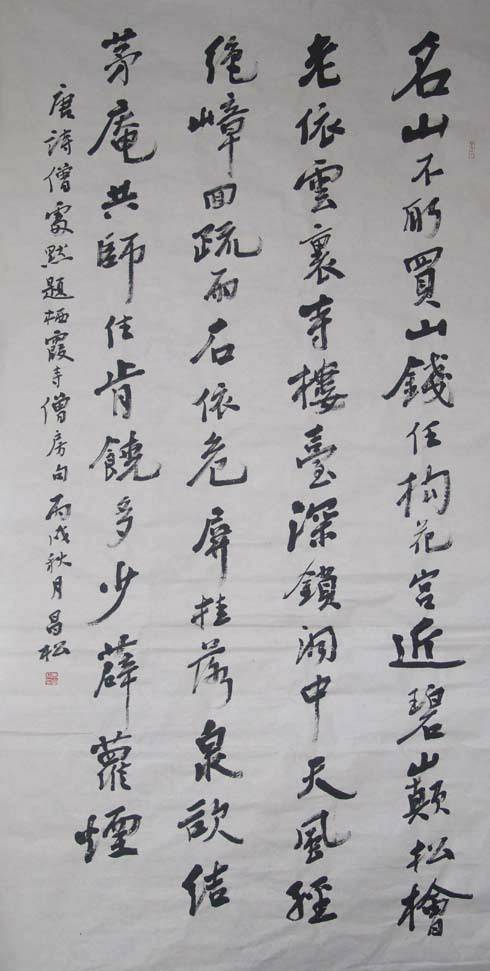 名山不取買山錢任构花宫近碧巔松檜
老依雲裏寺樓臺深鎖洞中天風經
絶嶂回疏雨石依危屏挂落泉欲结
茅庵共師住肯饒多少薜蘿煙
唐詩僧處默題栖霞寺僧房句丙戌秋月昌松